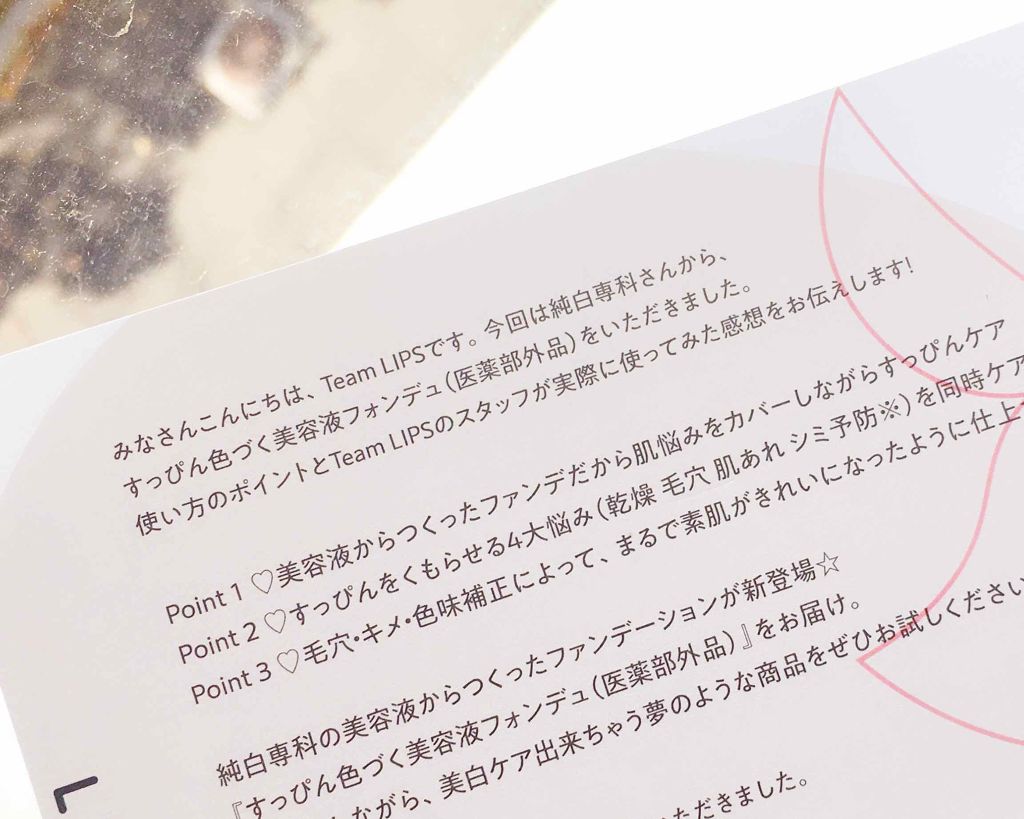 みなさんこんにちは、Team LIPSです。今回は純白専科さんから、
すっぴん色づく美容液フォンデュ(医薬部外品)をいただきました。
使い方のポイントとTeam LIPSのスタッフが実際に使ってみた感想をお伝えします!
Point 1 ♡美容液からつくったファンデだから肌悩みをカバーしながらすっぴんケア
Point 2 ♡すっぴんをくもらせる4大悩み(乾燥 毛穴 肌あれ シミ予防※)を同時ケア
Point 3 ♡毛穴・キメ・色味補正によって、まるで素肌がきれいになったように仕上
純白専科の美容液からつくったファンデーションが新登場☆
『すっぴん色づく美容液フォンデュ(医薬部外品)』をお届け。
ながら、美白ケア出来ちゃう夢のような商品をぜひお試しください
ただきました。